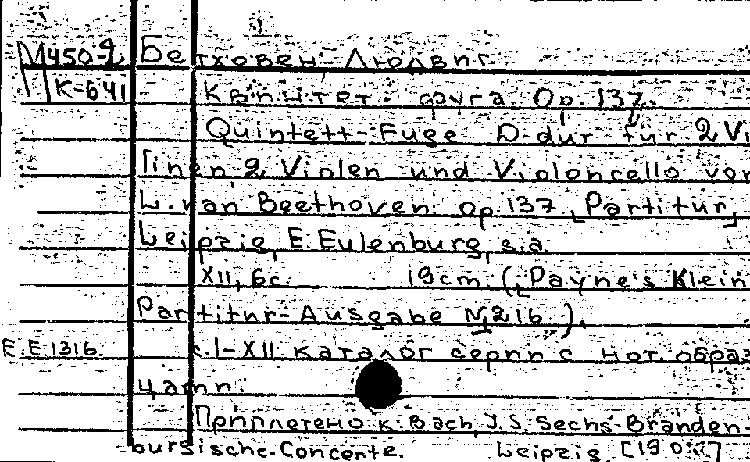 М450.9 Бетховен, Людвиг.
К-641 Квинтет-фуга. Op. 137.
Quintett-Fuge D-dur für 2 Vi
linen, 2 Violen und Violoncello von
L. van Beethoven. op. 137. [Partitur]
Leipzig, E. Eulenburg, s.a.
XII, 6c. 19cm. ([Payne's Klein
Partitur-Ausgabe N 216.).
E.E 1316. с. I-XII каталог серии с нот. образ
цами.
Приплетено к: Bach, J. S. Sechs Branden-
burgische Concerte. Leipzig,